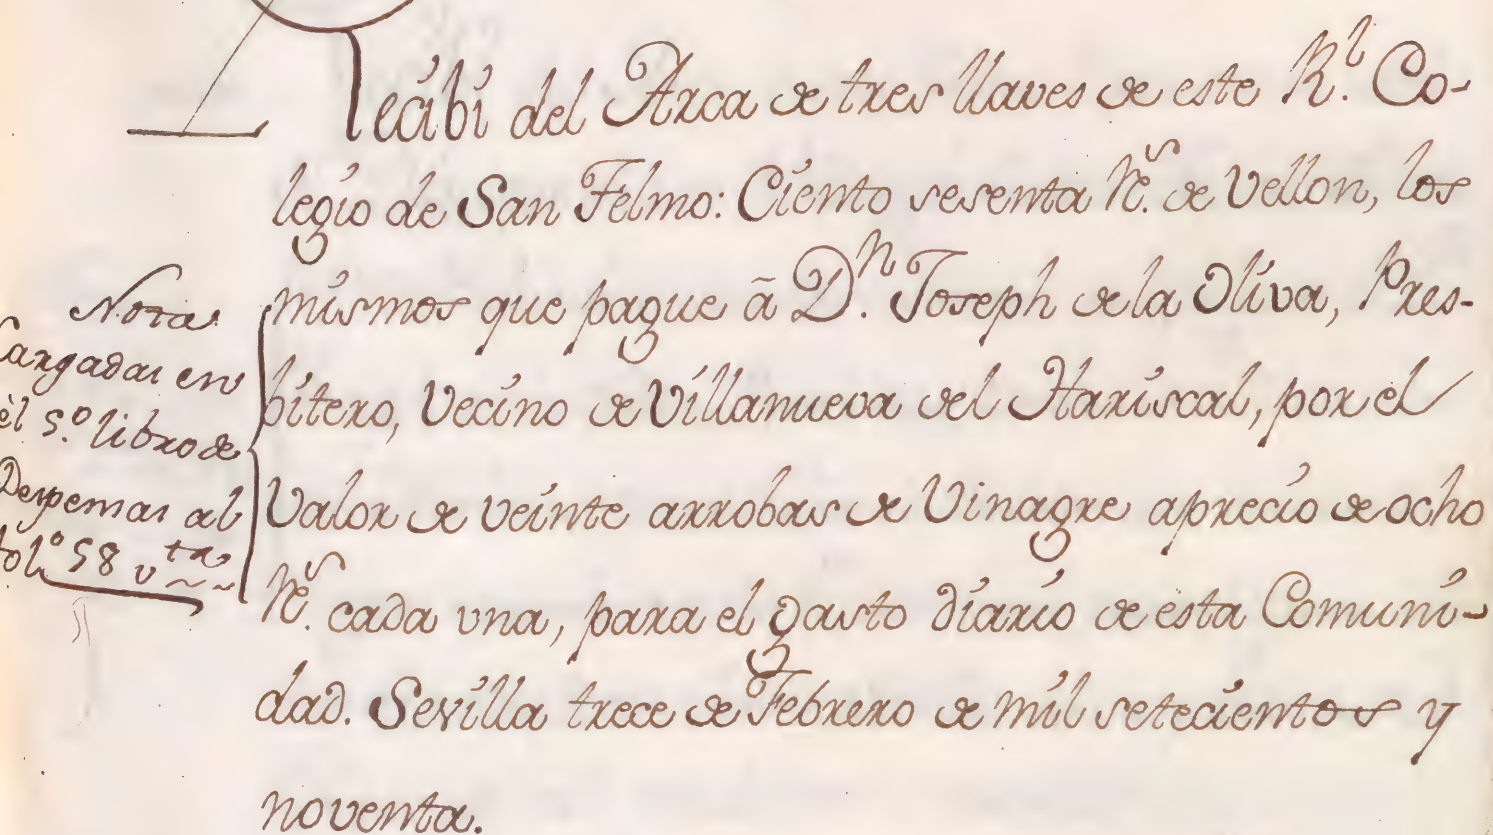 Recibi del Arca de tres llaves de este R.^l Co-
legio de San Telmo: Ciento sesenta R^s. de vellon, los
mismos que pague â D.^n Joseph de la Oliva, Pres-
bitero, Vecino de Villanueva del Hariscal, por el
Valor de veinte arrobas de Vinagre aprecio de ocho
R^s. cada una, para el gasto diario de esta Comuni-
dad. Sevilla trece de Febrero de mil setecientos y
noventa.
Nota
Cargadas en
èl 5.º libro de
Despensas al
folº 58 v^ta